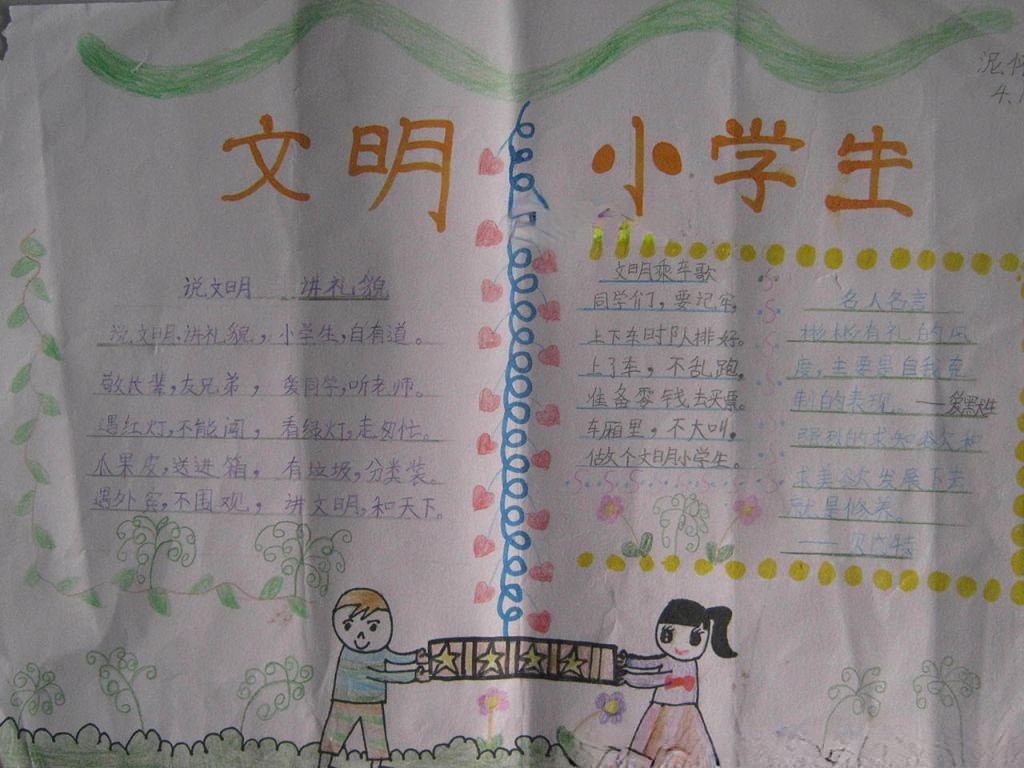 文明 小学生
说文明 讲礼貌
说文明,讲礼貌,小学生,自有道。
敬长辈,友兄弟,爱同学,听老师。
遇红灯,不能闯,看绿灯,走匆忙。
瓜果皮,送进箱,有垃圾,分类装。
遇外宾,不围观,讲文明,和天下。
文明乘车歌
同学们,要记牢,
上下车时队排好。
上了车,不乱跑,
准备零钱去买票。
车厢里,不大叫,
做个文明小学生。
名人名言
彬彬有礼的风
度,主要是自我克
制的表现。——爱默生
强烈的求知欲和
求美欲发展下去
就是修养。
——贝戈特
4.